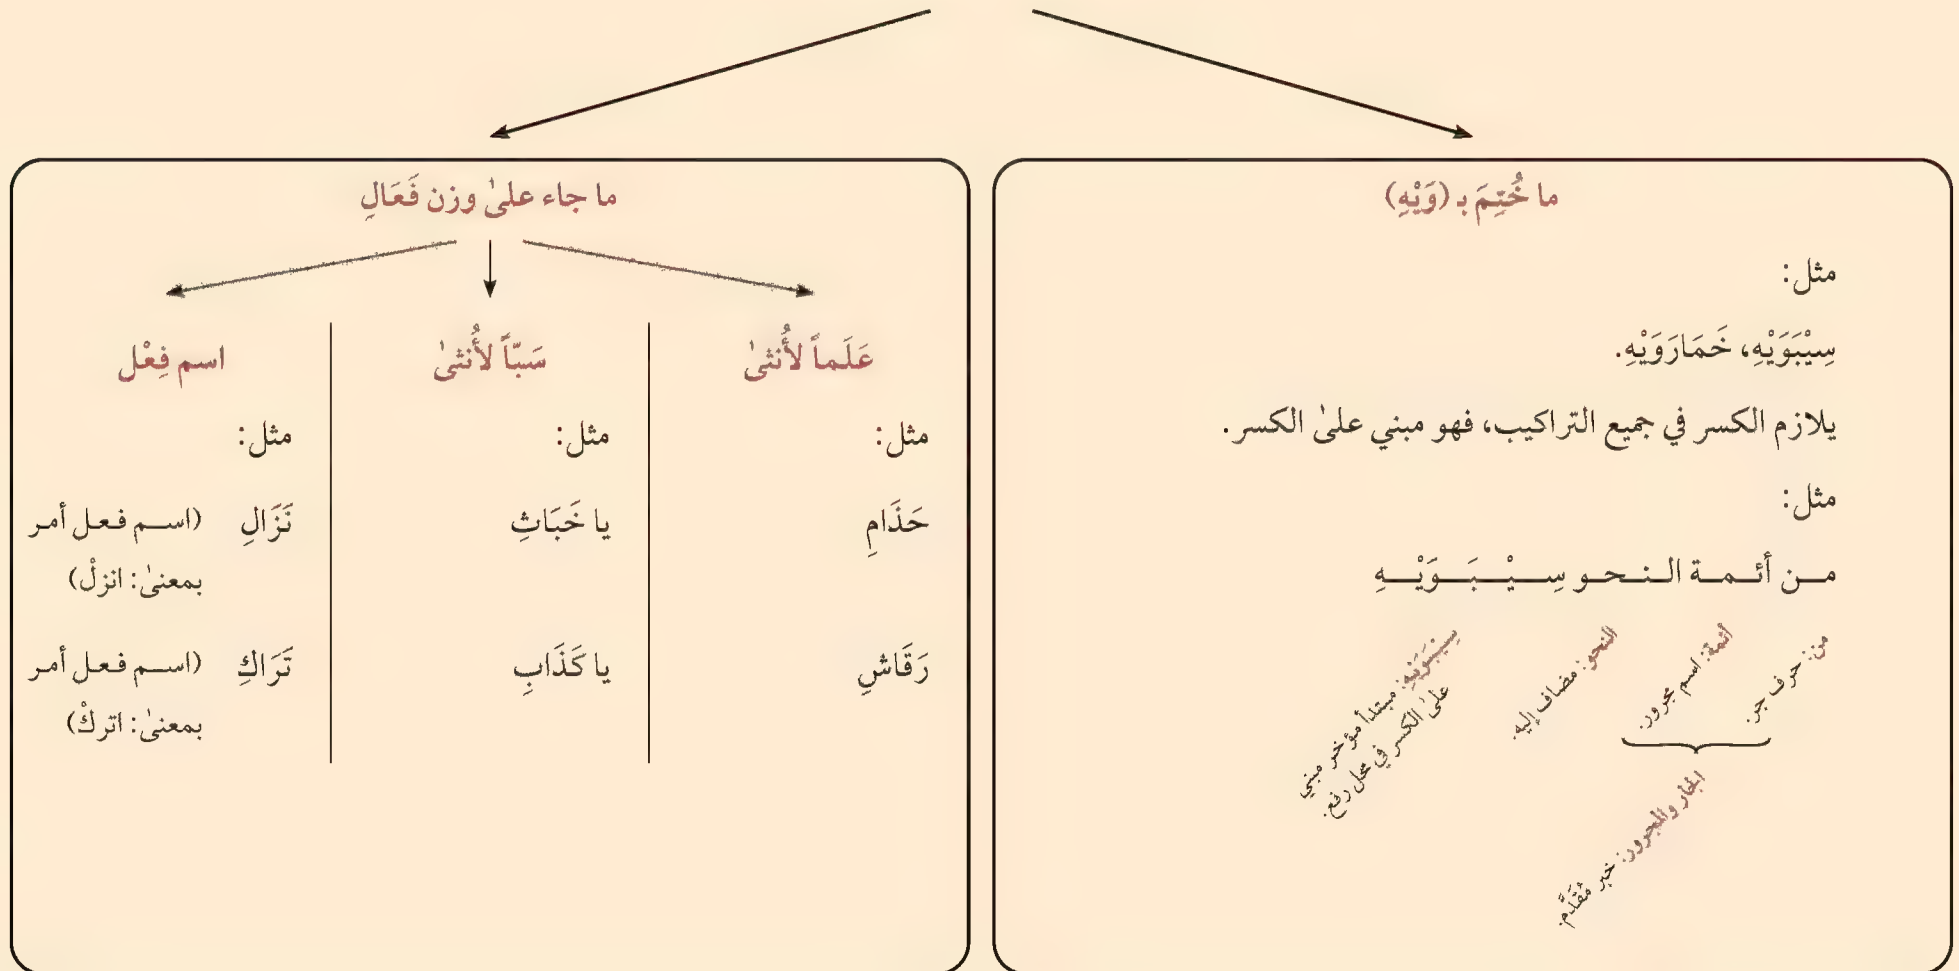 ما خُتِمَ بـ (وَيْهِ)
مثل:
سِيْبَوَيْهِ، خَمَارَوَيْهِ.
يلازم الكسر في جميع التراكيب، فهو مبني علىٰ الكسر.
مثل:
مـن أئـمـة الـنـحـو سِـيْـبَـوَيْـهِ
من: حرف جر.
أئمة: اسم مجرور.
النحو: مضاف إليه.
سِيْبَوَيْهِ: مبتدأ مؤخر مبني
علىٰ الكسر في محل رفع.
الجار والمجرور: خبر مُقَدَّم.
ما جاء علىٰ وزن فَعَالِ
عَلَماً لأُنثىٰ
مثل:
حَذَامِ
رَقَاشِ
سَبّاً لأُنثىٰ
مثل:
يا خَبَاثِ
يا كَذَابِ
اسم فِعْل
مثل:
نَزَالِ (اسـم فـعـل أمـر
بمعنىٰ: انزلْ)
تَرَاكِ (اسـم فـعـل أمـر
بمعنىٰ: اتركْ)